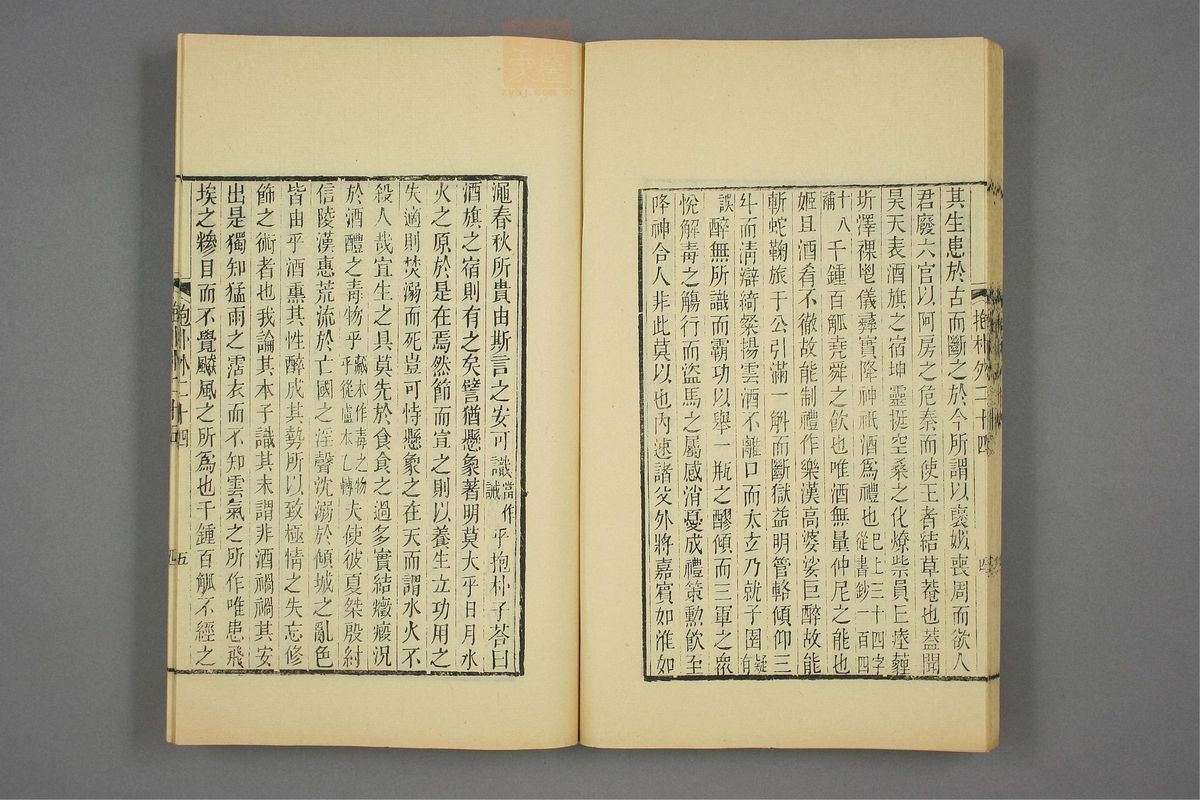 其生患於古而斷之於今所謂以褒姒喪周而欲人
君廢六宮以阿房之危秦而使王者結草菴也蓋聞
昊天表酒旗之宿坤靈挺空桑之化燎柴員丘瘞薶
圻澤祼鬯儀彝實降神祇酒爲禮也已上三十四字從書鈔一百四
十八補千鍾百觚堯舜之飲也唯酒無量仲尼之能也
姬旦酒肴不徹故能制禮作樂漢高婆娑巨醉故能
斬蛇鞠旅于公引滿一斛而斷獄益明管輅傾仰三
斗而淸辯綺粲揚雲酒不離口而太玄乃就子圉有疑
誤醉無所識而霸功以舉一瓶之醪傾而三軍之衆
悅解毒之觴行而盜馬之屬感消憂成禮策勳飲至
降神合人非此莫以也內速諸父外將嘉賓如淮如
抱朴外二十四
四
澠春秋所貴由斯言之安可識當作誡乎抱朴子荅曰
酒旗之宿則有之矣譬猶懸象著明莫大乎日月水
火之原於是在焉然節而宣之則以養生立功用之
失適則焚溺而死豈可恃懸象之在天而謂水火不
殺人哉宜生之具莫先於食食之過多實結癥瘕況
於酒醴之毒物乎藏本作毒之物乎從盧本乙轉夫使彼夏桀殷紂
信陵漢惠荒流於亡國之淫聲沈溺於傾城之亂色
皆由乎酒熏其性醉成其勢所以致極情之失忘修
飾之術者也我論其本子識其末謂非酒禍禍其安
出是獨知猛雨之霑衣而不知雲氣之所作唯患飛
埃之糝目而不覺飇風之所爲也千鍾百觚不經之
抱朴外二十四
五